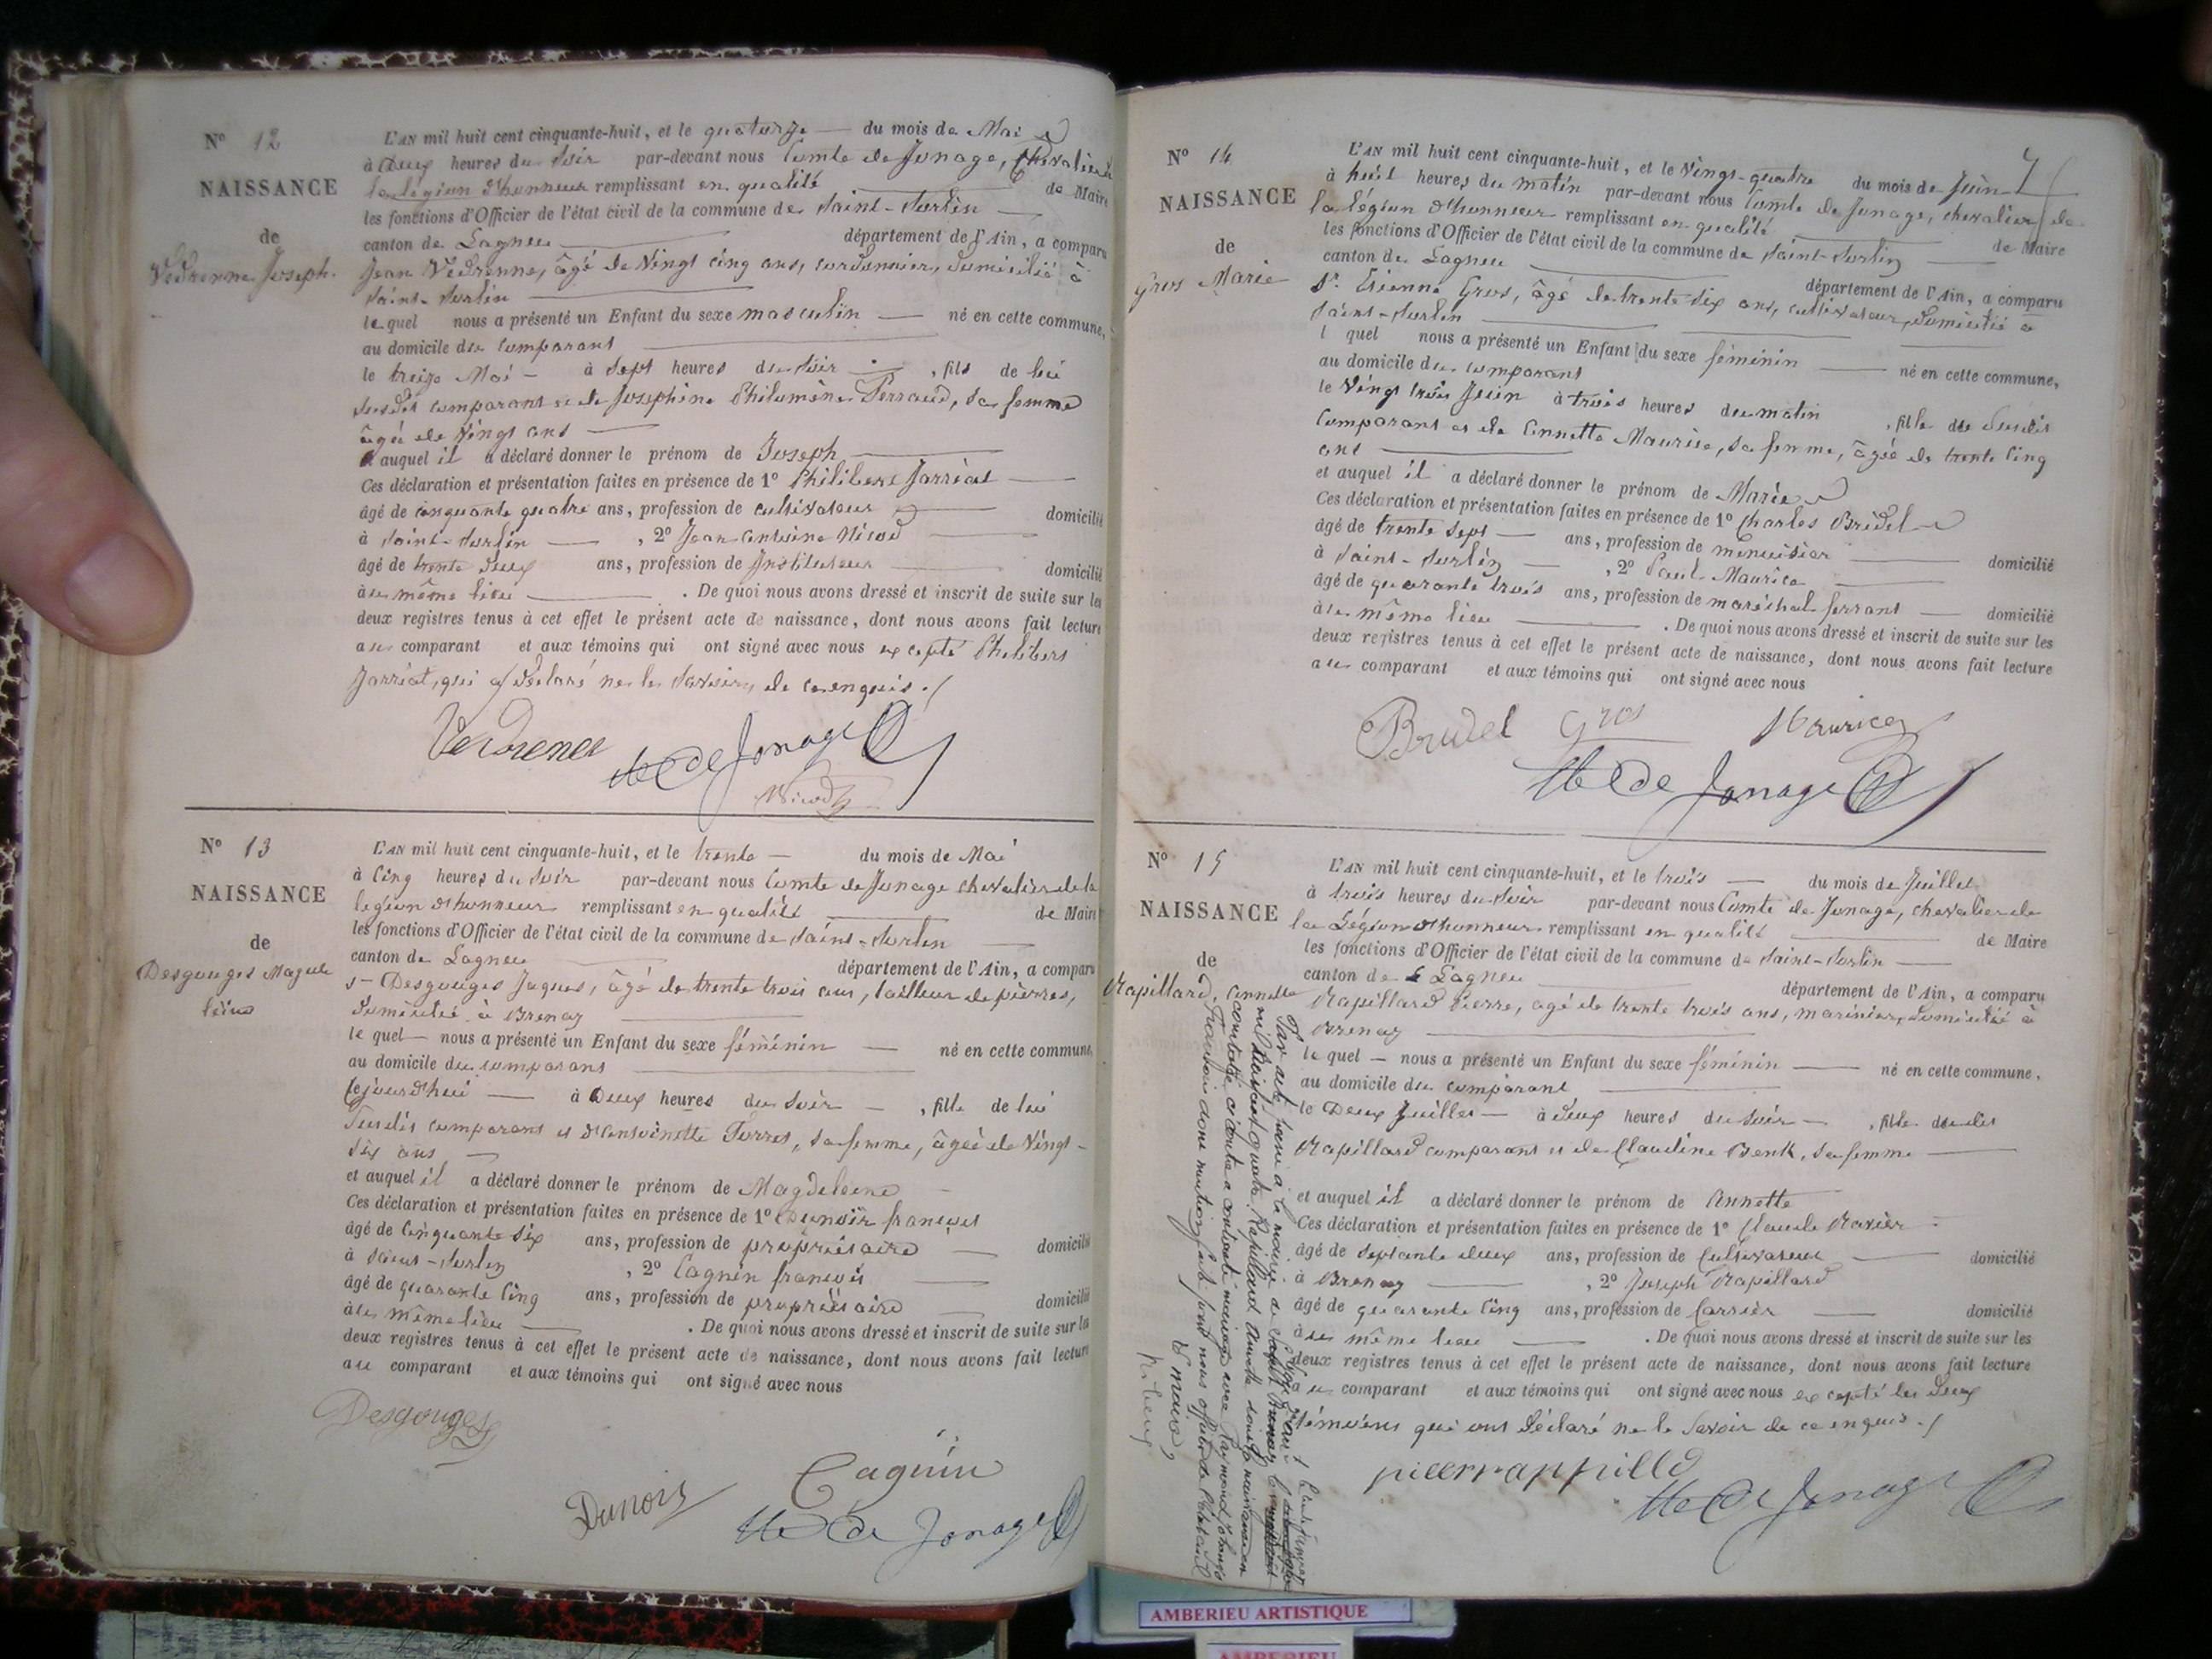 N° 12
NAISSANCE
de
Vedrenne Joseph.
L'AN mil huit cent cinquante-huit, et le quatorze — du mois de Mai
à Deux heures du soir par-devant nous Comte de Jonage, Chevalier de
la légion d'honneur remplissant en qualité de Maire
les fonctions d'Officier de l'état civil de la commune de Saint-Sorlin —
canton de Lagneu — département de l'Ain, a comparu
Jean Vedrenne, âgé de Vingt cinq ans, cordonnier, domicilié à
Saint-Sorlin —
lequel nous a présenté un Enfant du sexe masculin — né en cette commune,
au domicile du comparant —
le treize Mai — à Sept heures du soir — , fils de lui
susdit comparant et de Josephine Philomène Perraud, sa femme
âgée de Vingt ans —
auquel il a déclaré donner le prénom de Joseph —
Ces déclaration et présentation faites en présence de 1° Philibert Jarriat —
âgé de cinquante quatre ans, profession de cultivateur — domicilié
à Saint-Sorlin — , 2° Jean Antoine Nicod —
âgé de trente deux ans, profession de Instituteur — domicilié
au même lieu — . De quoi nous avons dressé et inscrit de suite sur les
deux registres tenus à cet effet le présent acte de naissance, dont nous avons fait lecture
au comparant et aux témoins qui ont signé avec nous excepté Philibert
Jarriat, qui a déclaré ne le savoir, de ce enquis ./
Vedrenne Cte de Jonage
Nicod
N° 13
NAISSANCE
de
Desgouges Magde
leine
L'AN mil huit cent cinquante-huit, et le trente — du mois de Mai
à Cinq heures du soir par-devant nous Comte de Jonage chevalier de la
légion d'honneur remplissant en qualité — de Maire
les fonctions d'Officier de l'état civil de la commune de Saint-Sorlin —
canton de Lagneu — département de l'Ain, a comparu
sr Desgouges Jaques, âgé de trente trois ans, tailleur de pierres,
domicilié à Brenaz —
lequel — nous a présenté un Enfant du sexe féminin — né en cette commune,
au domicile du comparant —
Cejourd'hui — à Deux heures du soir — , fille de lui
susdit comparant et d'Antoinette Torret, sa femme, âgée de Vingt-
six ans —
et auquel il a déclaré donner le prénom de Magdeleine —
Ces déclaration et présentation faites en présence de 1° Dunoir françois
âgé de Cinquante six ans, profession de propriétaire — domicilié
à Saint-Sorlin , 2° Cagnin françois —
âgé de quarante cinq ans, profession de propriétaire — domicilié
au même lieu — . De quoi nous avons dressé et inscrit de suite sur les
deux registres tenus à cet effet le présent acte de naissance, dont nous avons fait lecture
au comparant et aux témoins qui ont signé avec nous
Desgouges
Cagnin
Dunoir
Cte de Jonage
N° 14
NAISSANCE
de
Gros Marie
7
L'AN mil huit cent cinquante-huit, et le Vingt-quatre du mois de Juin
à huit heures du matin par-devant nous Comte de Jonage, chevalier de
la légion d'honneur remplissant en qualité — de Maire
les fonctions d'Officier de l'état civil de la commune de Saint-Sorlin —
canton de Lagneu — département de l'Ain, a comparu
sr Etienne Gros, âgé de trente six ans, cultivateur, domicilié à
Saint-Sorlin —
l quel nous a présenté un Enfant du sexe féminin — né en cette commune,
au domicile du comparant
le Vingt trois Juin à trois heures du matin , fille du susdit
Comparant et de Annette Maurice, sa femme, âgée de trente cinq
ans —
et auquel il a déclaré donner le prénom de Marie
Ces déclaration et présentation faites en présence de 1° Charles Bridel
âgé de trente sept — ans, profession de menuisier — domicilié
à Saint-Sorlin — , 2° Paul Maurice —
âgé de quarante trois ans, profession de maréchal ferrant — domicilié
au même lieu — . De quoi nous avons dressé et inscrit de suite sur les
deux registres tenus à cet effet le présent acte de naissance, dont nous avons fait lecture
au comparant et aux témoins qui ont signé avec nous
Bridel Gros Maurice
Cte de Jonage
N° 15
NAISSANCE
de
Rapillard, Annette
L'AN mil huit cent cinquante-huit, et le trois — du mois de Juillet
à trois heures du soir par-devant nous Comte de Jonage, chevalier de
la Légion d'honneur remplissant en qualité — de Maire
les fonctions d'Officier de l'état civil de la commune de Saint-Sorlin —
canton de Lagneu — département de l'Ain, a comparu
Rapillard Pierre, agé de trente trois ans, marinier, domicilié à
Brenaz —
lequel — nous a présenté un Enfant du sexe féminin — né en cette commune,
au domicile du comparant —
le Deux Juillet — à deux heures du soir — , fille du dit
Rapillard comparant et de Claudine Benk, sa femme —
et auquel il a déclaré donner le prénom de Annette
Ces déclaration et présentation faites en présence de 1° Claude Ravier —
âgé de septante deux ans, profession de Cultivateur — domicilié
à Brenaz — , 2° Joseph Rapillard
âgé de quarante cinq ans, profession de Carrier — domicilié
au même lieu — . De quoi nous avons dressé et inscrit de suite sur les
deux registres tenus à cet effet le présent acte de naissance, dont nous avons fait lecture
au comparant et aux témoins qui ont signé avec nous excepté les deux
témoins qui ont déclaré ne le savoir de ce enquis ./
pierr rappilld
Cte de Jonage
Par acte passé à la mairie de
mil quatre Rapillard Annette dont la naissance en
contracté mariage avec Raymond
dont mention faite par nous officier de l'état civil
Le maire,
AMBERIEU ARTISTIQUE
AMBERIEU